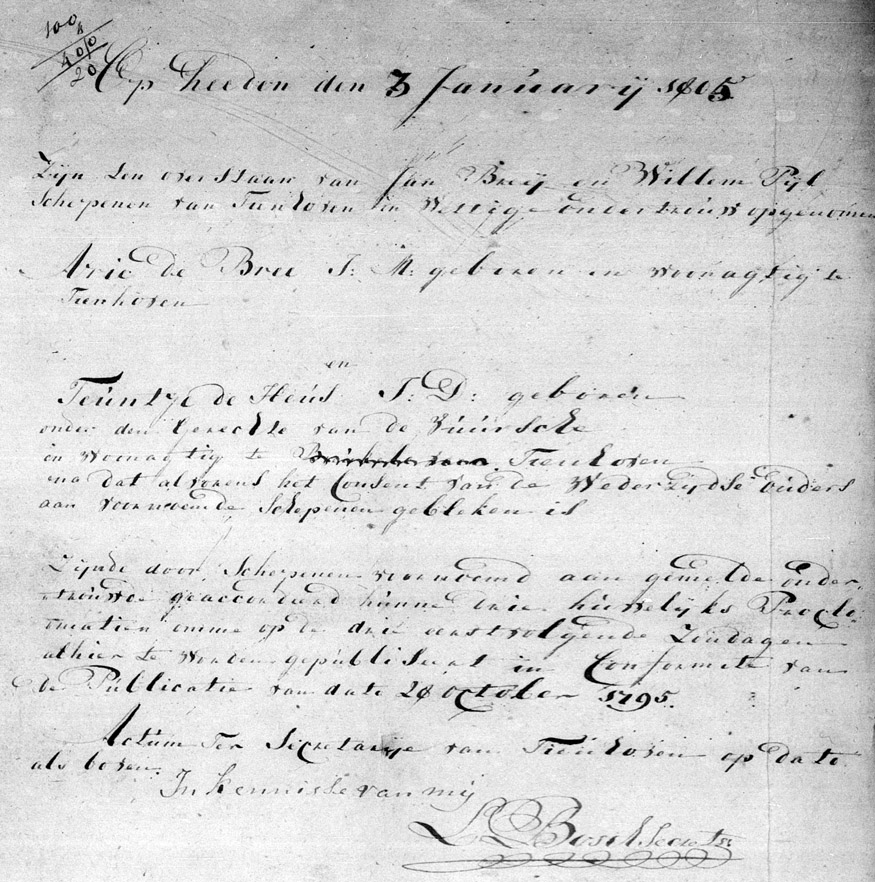 100
400
20
Op heeden den 3 Januarij 1805
Zijn ten overstaan van Jan Breij en Willem Pijl
Schepenen van Tienhoven in Wettige ondertrouw opgenomen
Arie de Bree J: M: geboren en woonagtig te
Tienhoven
en
Teuntje de Heus J: D: geboren
onder den Gerechte van de Vuursche
en woonagtig te Tienhoven
na dat alvorens het Consent van de Wederzijdse ouders
aan voornoemde Schepenen gebleken is
Zijnde door Schepenen voornoemd aan gemelde onder-
trouwde geaccordeerd hunne drie huwelijks Procla-
matien omme op de drie eerstvolgende Zondagen
alhier te worden gepubliseert in Conformite van
de Publicatie van date October 1795.
Actum Ter Secretarije van Tienhoven op date
als boven.
In kennisse van mij
Bosch Secrets: